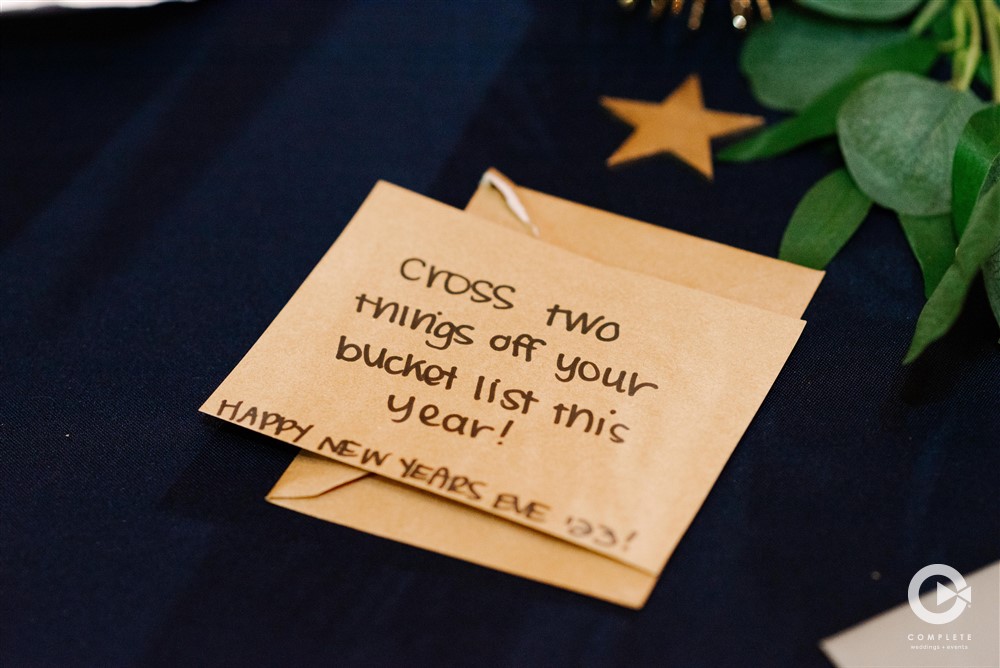 cross two
things off your
bucket list this
year!
HAPPY NEW YEARS EVE '23!
COMPLETE
weddings + events